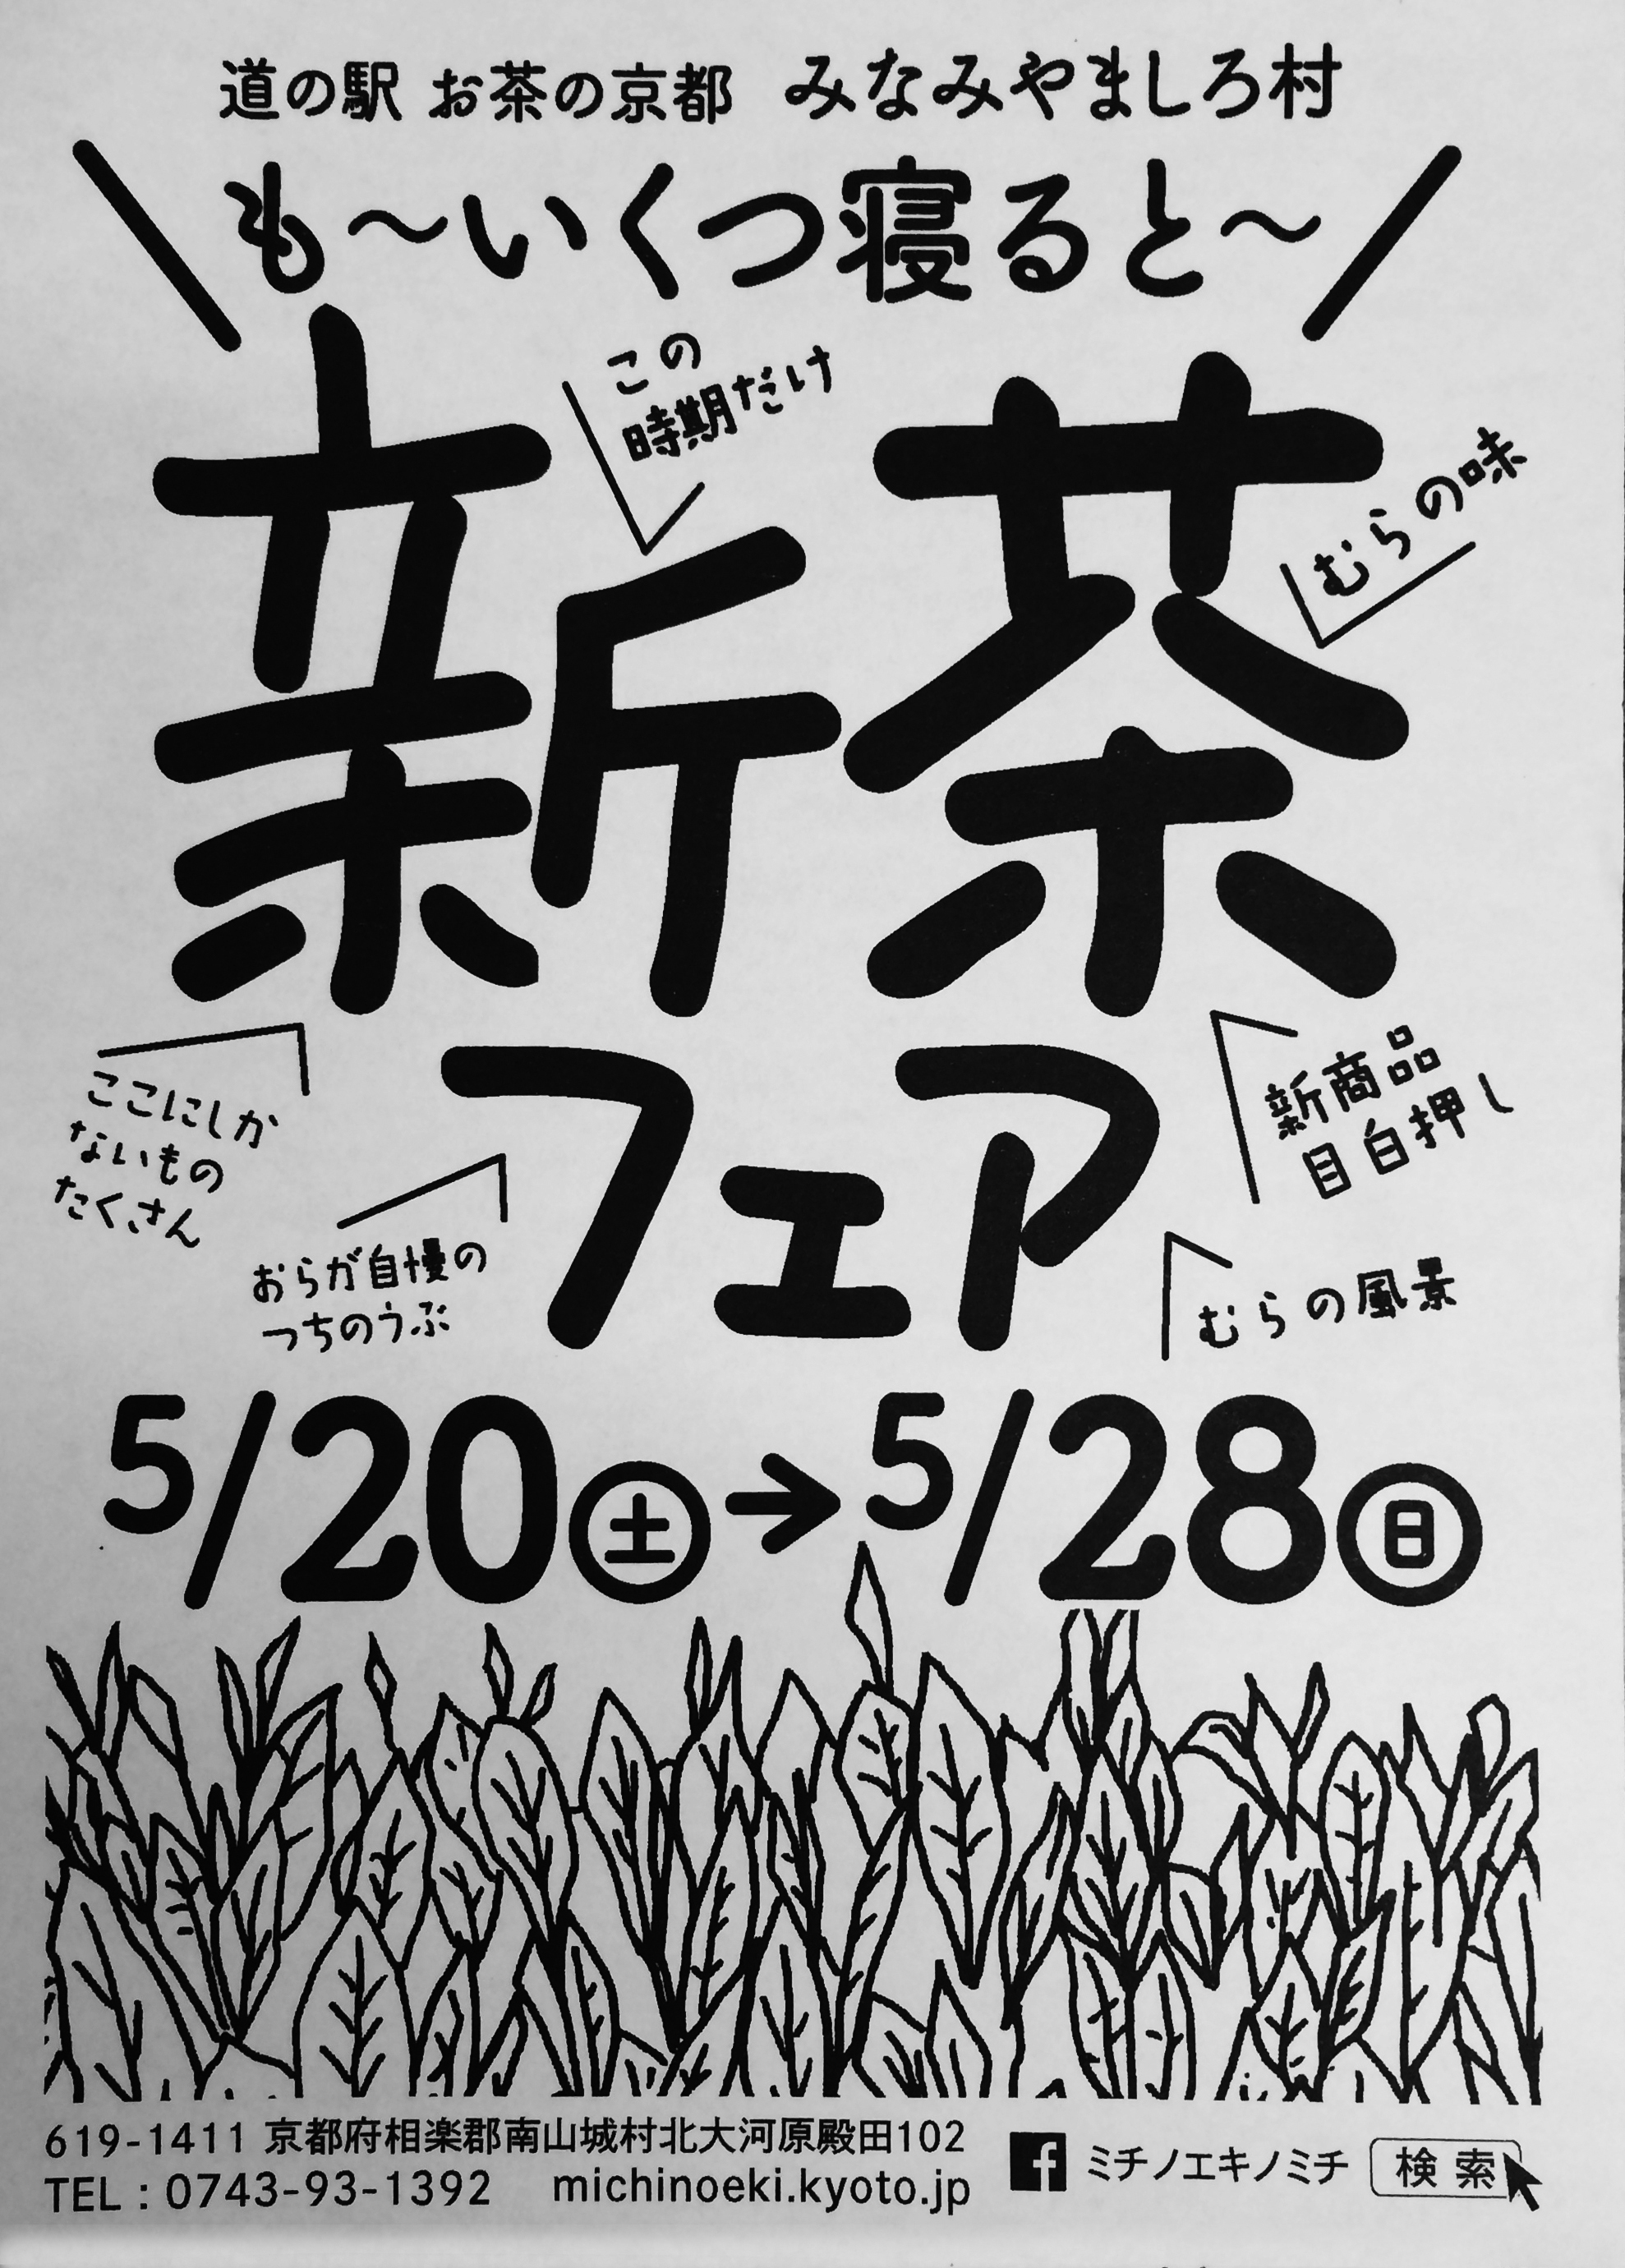 道の駅 お茶の京都 みなみやましろ村
も〜いくつ寝ると〜
この
時期だけ
むらの味
新茶
フェア
ここにしか
ないもの
たくさん
おらが自慢の
つちのうぶ
新商品
目白押し
むらの風景
5/20㊏→5/28㊐
619-1411 京都府相楽郡南山城村北大河原殿田102
TEL : 0743-93-1392 michinoeki.kyoto.jp
f ミチノエキノミチ 検索